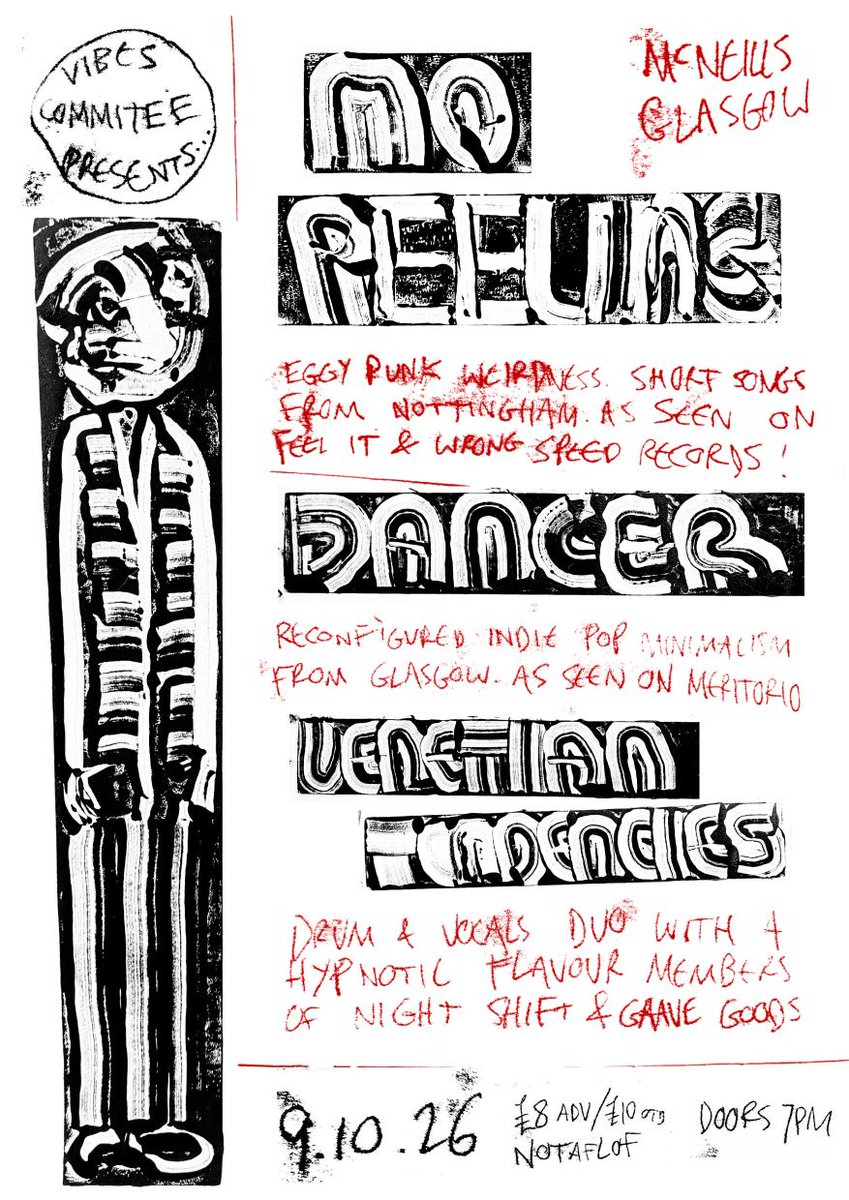 VIBES
COMMITEE
PRESENTS...
MCNEILLS
GLASGOW
NO
PEELING
EGGY PUNK WEIRDNESS. SHORT SONGS
FROM NOTTINGHAM. AS SEEN ON
FEEL IT & WRONG SPEED RECORDS!
DANCER
RECONFIGURED INDIE POP MINIMALISM
FROM GLASGOW. AS SEEN ON MERITORIO
VENETIAN
TENDENCIES
DRUM & VOCALS DUO WITH A
HYPNOTIC FLAVOUR MEMBERS
OF NIGHT SHIFT & GRAVE GOODS
9.10.26
£8 ADV/£10 OTD
NOTAFLOF
DOORS 7PM